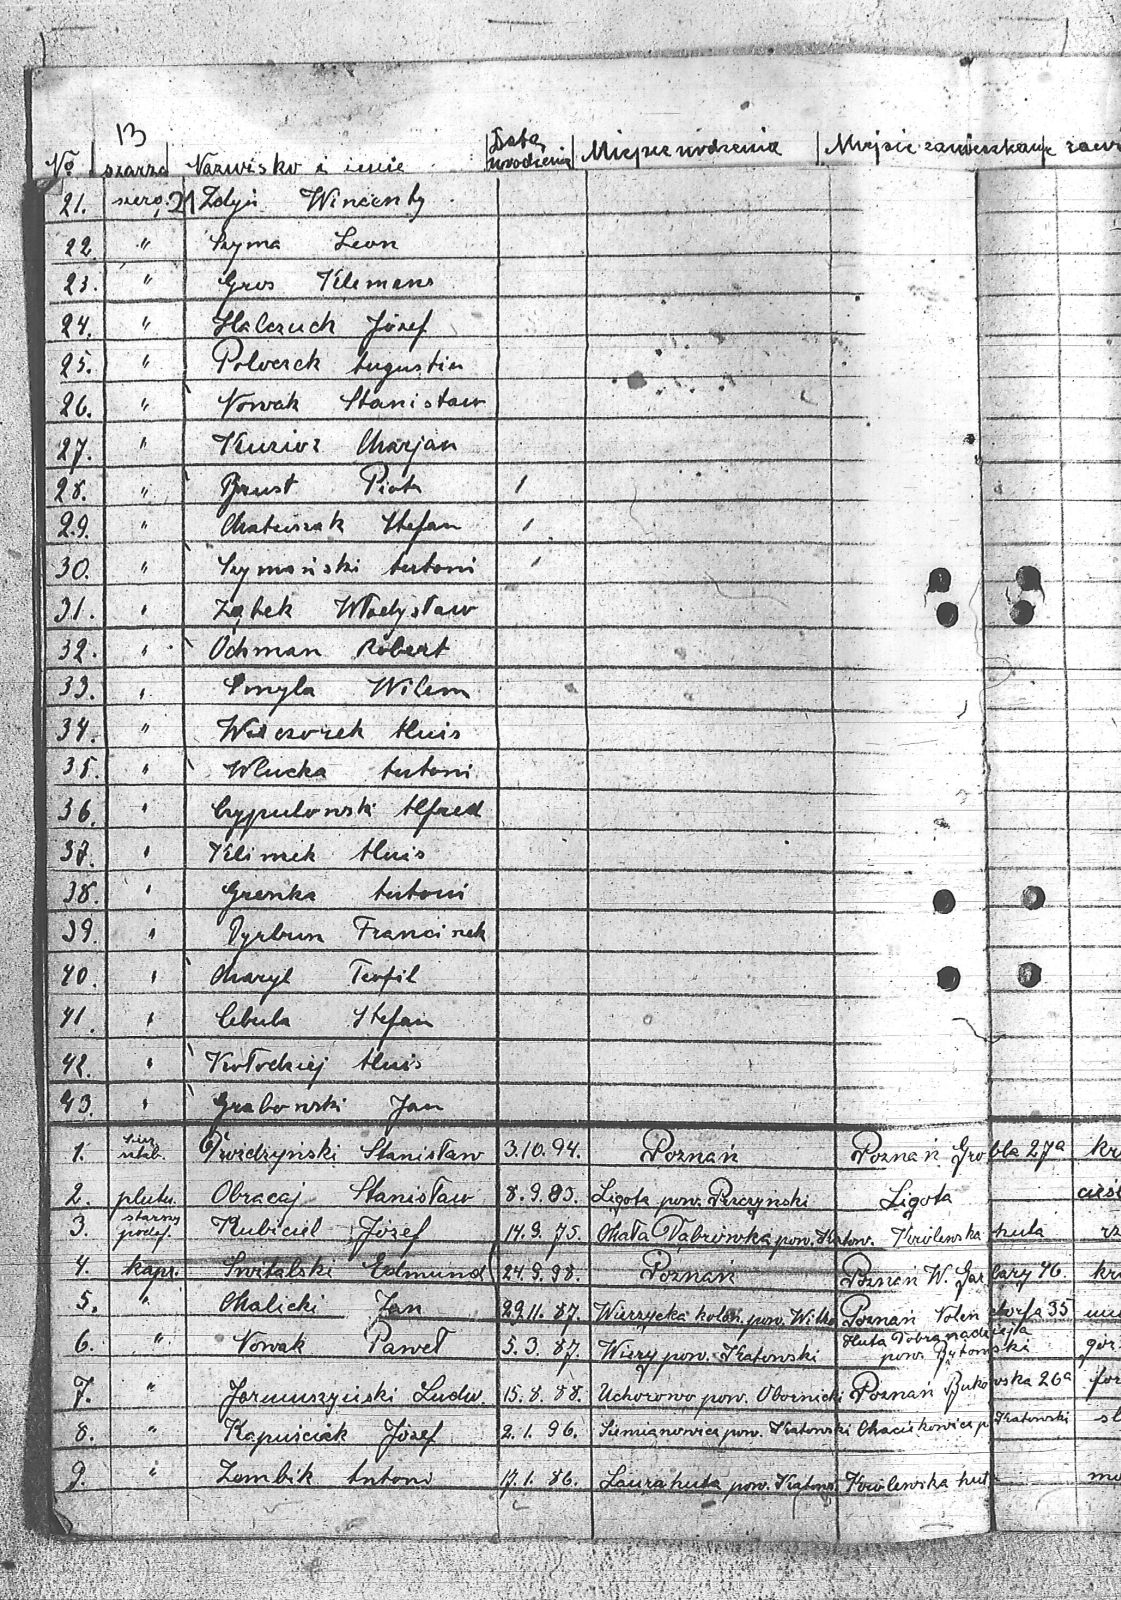 13
No szarża Nazwisko i imie Data urodzenia Miejsce urodzenia Miejsce zamieszkanie zawi
21. szereg. 21 Zdyń Wincenty
22. " Szyma Leon
23. " Gros Klemens
24. " Halczuch Józef
25. " Poloczek Augustin
26. " Nowak Stanisław
27. " Kuzior Marjan
28. " Brust Piotr
29. " Matuszak Stefan
30. " Szymański Antoni
31. " Ząbek Władysław
32. " Ochman Robert
33. " Smyla Wilem
34. " Wieczorek Aluis
35. " Wlucka Antoni
36. " Cypulowski Alfred
37. " Klimek Aluis
38. " Grenka Antoni
39. " Dyrbun Francisek
40. " Maryl Teofil
41. " Cebula Stefan
42. " Kołodziej Aluis
43. " Grabowski Jan
1. sier. sztab. Stanisław 3.10.94. Poznań Poznań Grobla 27a kr
2. plutn. Obracaj Stanisław 8.9.95. Ligota pow. Ligota cieśl
3. starszy podof. Kubiciel Józef 14.9.75. Mała Dąbrówka pow. Katow. Królewska huta rz
4. kapr. Switalski Edmund 24.9.98. Poznań Poznań W. Garbary 46. kr
5. " Malicki Jan 29.11.87. Wierzycka kolon. pow. Witko Poznań 35
6. " Nowak Paweł 5.3.87. Wiery pow. Katowski Huta Dobranadzieja pow. Bytomski gór
7. " Jarmuszyński Ludw. 15.8.88. Uchorowo pow. Obornicki Poznań Bukowska 26a for
8. " Kapuściak Józef 2.1.96. Siemianowice pow. Katowski Maciekowice p. Katowski sl
9. " Zembik Antoni 17.1.86. Laurahuta pow. Katows. Królewska hut